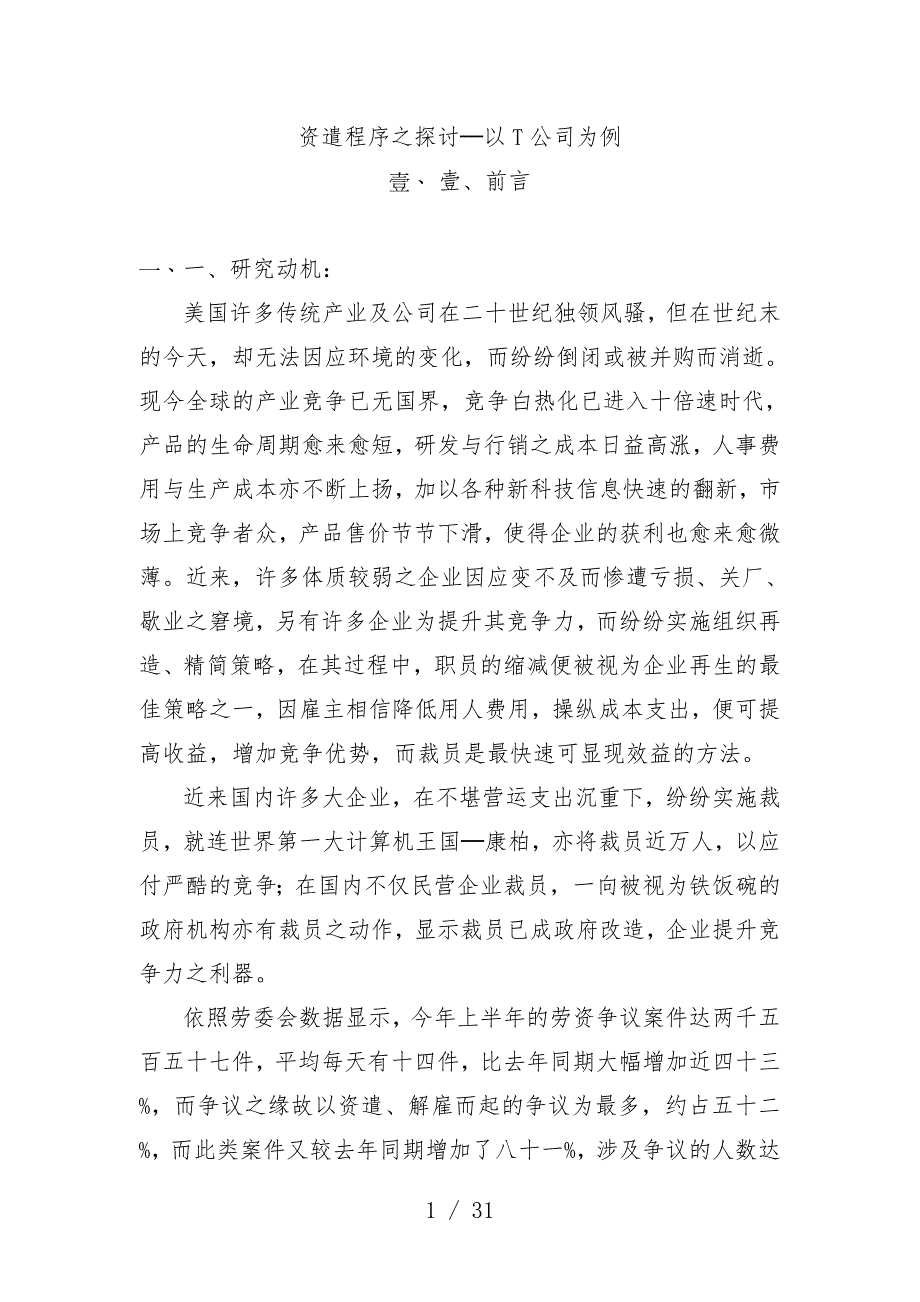 资遣程序之探讨—以T公司为例
壹、 壹、前言
一、一、研究动机：
美国许多传统产业及公司在二十世纪独领风骚，但在世纪末
的今天，却无法因应环境的变化，而纷纷倒闭或被并购而消逝。
现今全球的产业竞争已无国界，竞争白热化已进入十倍速时代，
产品的生命周期愈来愈短，研发与行销之成本日益高涨，人事费
用与生产成本亦不断上扬，加以各种新科技信息快速的翻新，市
场上竞争者众，产品售价节节下滑，使得企业的获利也愈来愈微
薄。近来，许多体质较弱之企业因应变不及而惨遭亏损、关厂、
歇业之窘境，另有许多企业为提升其竞争力，而纷纷实施组织再
造、精简策略，在其过程中，职员的缩减便被视为企业再生的最
佳策略之一，因雇主相信降低用人费用，操纵成本支出，便可提
高收益，增加竞争优势，而裁员是最快速可显现效益的方法。
近来国内许多大企业，在不堪营运支出沉重下，纷纷实施裁
员，就连世界第一大计算机王国—康柏，亦将裁员近万人，以应
付严酷的竞争；在国内不仅民营企业裁员，一向被视为铁饭碗的
政府机构亦有裁员之动作，显示裁员已成政府改造，企业提升竞
争力之利器。
依照劳委会数据显示，今年上半年的劳资争议案件达两千五
百五十七件，平均每天有十四件，比去年同期大幅增加近四十三
%，而争议之缘故以资遣、解雇而起的争议为最多，约占五十二
%，而此类案件又较去年同期增加了八十一%，涉及争议的人数达
1 / 31